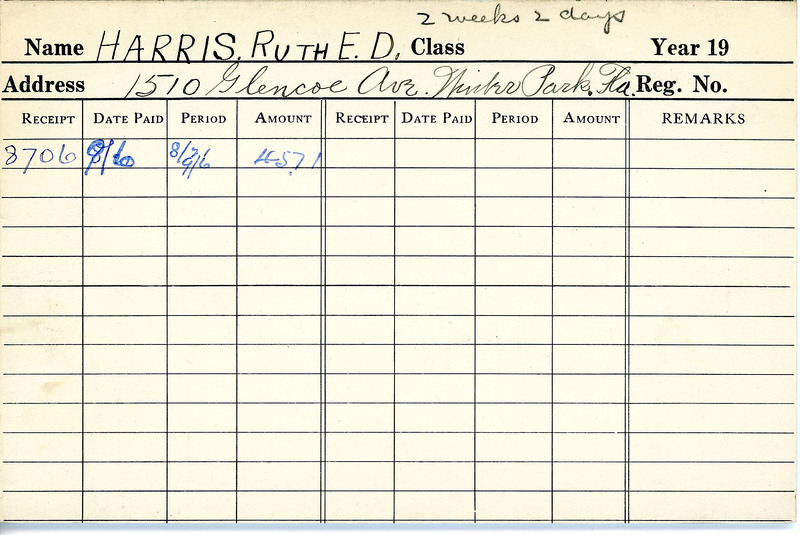 2 weeks 2 days
Name HARRIS, RUTH E. D. Class Year 19
Address 1510 Glencoe Ave. Winter Park, Fla. Reg. No.
RECEIPT DATE PAID PERIOD AMOUNT RECEIPT DATE PAID PERIOD AMOUNT REMARKS
8706 8/2 45.71
9/6